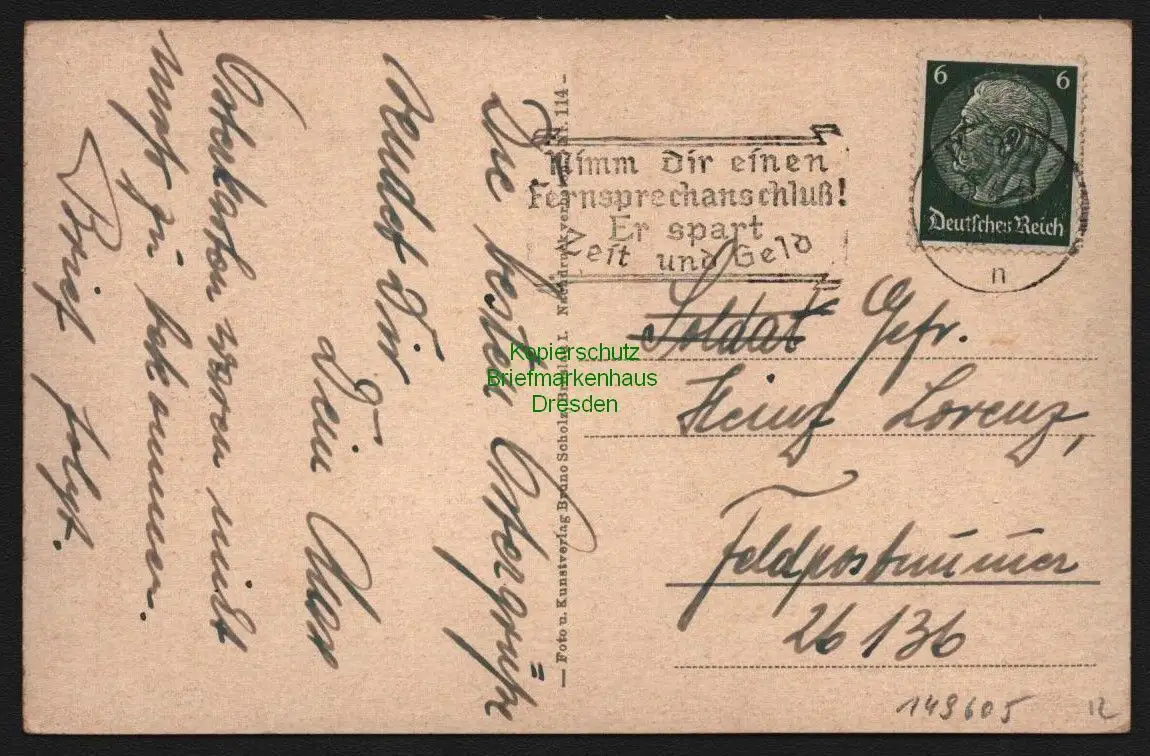 Die besten Ostergrüße
sendet Dir
Dein
Osterkarten waren nicht
mehr zu bekommen.
Brief folgt.
Foto u. Kunstverlag Bruno Scholz, Breslau I. Nachdruck verboten Nr. 114
Nimm dir einen
Fernsprechanschluß!
Er spart
Zeit und Geld
6 6
Deutsches Reich
n
Soldat Gefr.
Heinz Lorenz,
Feldpostnummer
26136
149605
12
Kopierschutz
Briefmarkenhaus
Dresden